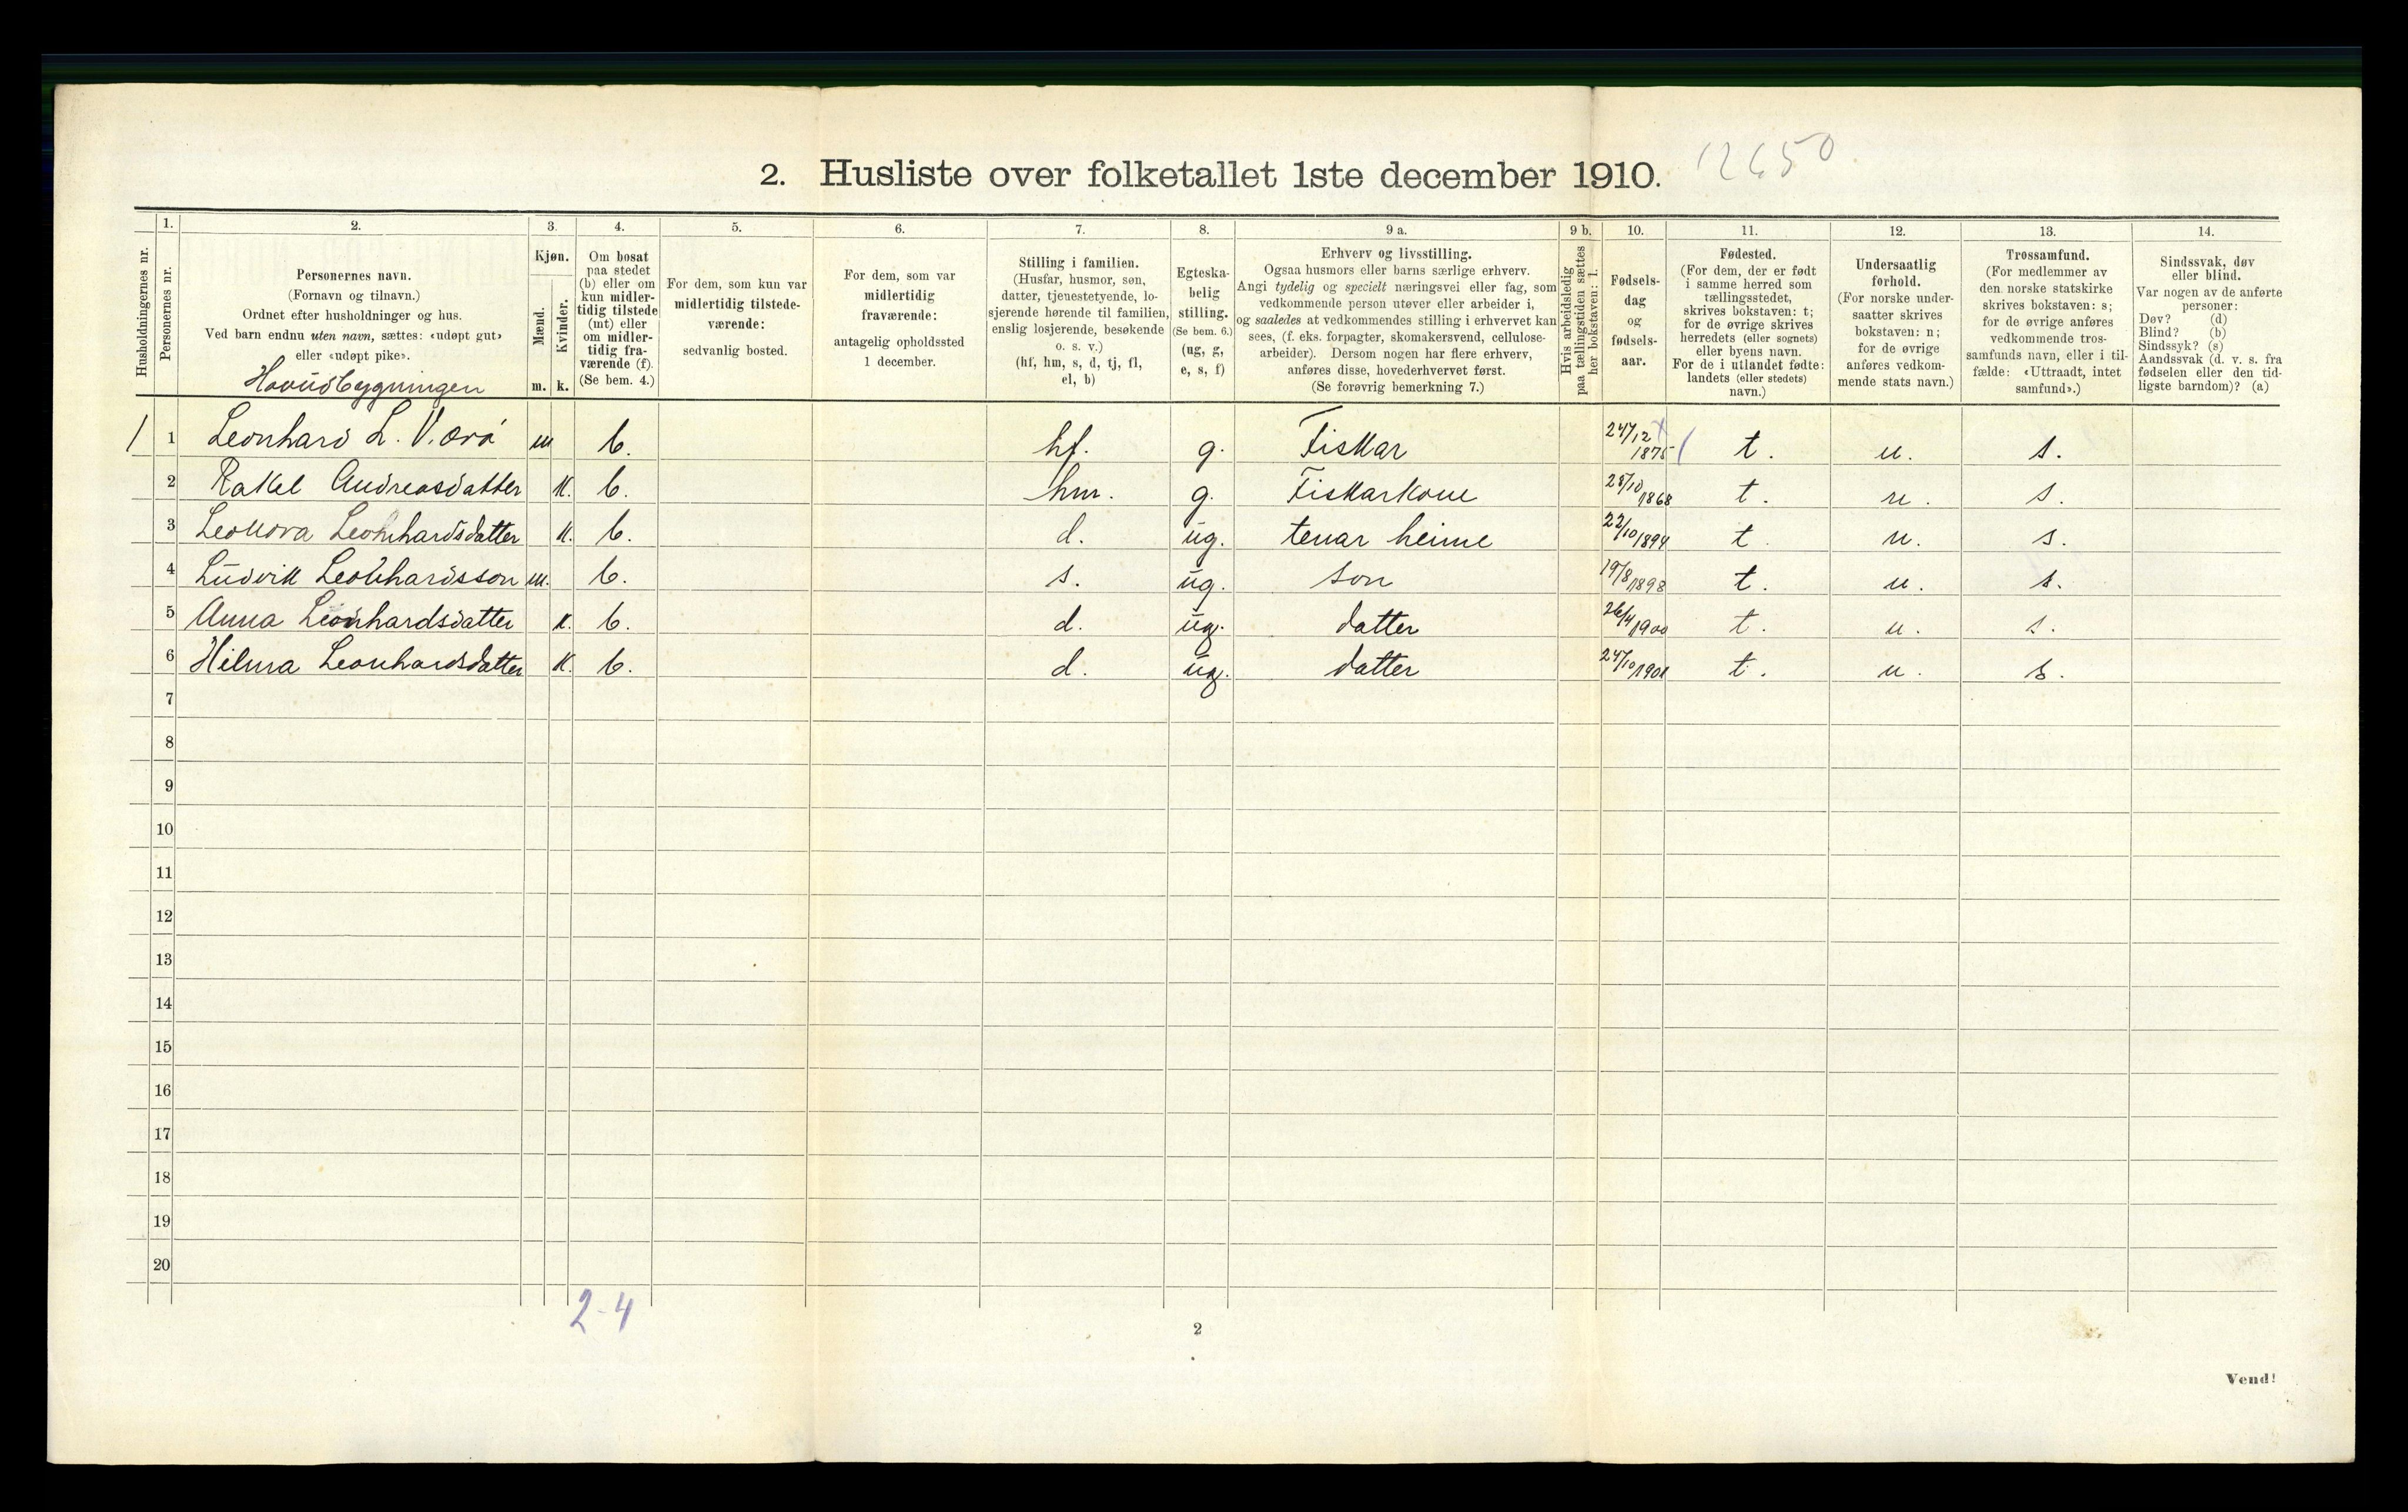 2. Husliste over folketallet 1ste december 1910.
12650
1. 2. 3. 4. 5. 6. 7. 8. 9 a. 9 b. 10. 11. 12. 13. 14.
Husholdningernes nr.
Personernes nr.
Personernes navn.
(Fornavn og tilnavn.)
Ordnet efter husholdninger og hus.
Ved barn endnu uten navn, sættes: «udøpt gut»
eller «udøpt pike».
Hovudbygningen
Kjøn.
Mænd.
Kvinder.
m. k.
Om bosat
paa stedet
(b) eller om
kun midler-
tidig tilstede
(mt) eller
om midler-
tidig fra-
værende (f).
(Se bem. 4.)
For dem, som kun var
midlertidig tilstede-
værende:
sedvanlig bosted.
For dem, som var
midlertidig
fraværende:
antagelig opholdssted
1 december.
Stilling i familien.
(Husfar, husmor, søn,
datter, tjenestetyende, lo-
sjerende hørende til familien,
enslig losjerende, besøkende
o. s. v.)
(hf, hm, s, d, tj, fl,
el, b)
Egteska-
belig
stilling.
(Se bem. 6.)
(ug, g,
e, s, f)
Erhverv og livsstilling.
Ogsaa husmors eller barns særlige erhverv.
Angi tydelig og specielt næringsvei eller fag, som
vedkommende person utøver eller arbeider i,
og saaledes at vedkommendes stilling i erhvervet kan
sees, (f. eks. forpagter, skomakersvend, cellulose-
arbeider). Dersom nogen har flere erhverv,
anføres disse, hovederhvervet først.
(Se forøvrig bemerkning 7.)
Hvis arbeidsledig
paa tællingstiden sættes
her bokstaven: l.
Fødsels-
dag
og
fødsels-
aar.
Fødested.
(For dem, der er født
i samme herred som
tællingsstedet,
skrives bokstaven: t;
for de øvrige skrives
herredets (eller sognets)
eller byens navn.
For de i utlandet fødte:
landets (eller stedets)
navn.)
Undersaatlig
forhold.
(For norske under-
saatter skrives
bokstaven: n;
for de øvrige
anføres vedkom-
mende stats navn.)
Trossamfund.
(For medlemmer av
den norske statskirke
skrives bokstaven: s;
for de øvrige anføres
vedkommende tros-
samfunds navn, eller i til-
fælde: «Uttraadt, intet
samfund».)
Sindssvak, døv
eller blind.
Var nogen av de anførte
personer:
Døv? (d)
Blind? (b)
Sindssyk? (s)
Aandssvak (d. v. s. fra
fødselen eller den tid-
ligste barndom)? (a)
1 1 Leonhard L. m b. hf. g. Fiskar 24/12 1875 t. n. s.
2 Rakel Andreasdatter k. b. hm. g. Fiskarkone 28/10 1868 t. n. s.
3 Leonora Leonhardsdatter k. b. d. ug. tenar heime 22/10 1894 t. n. s.
4 Ludvik Leonhardsson m. b. s. ug. son 19/8 1898 t. n. s.
5 Anna Leonhardsdatter k. b. d. ug. datter 26/4 1900 t. n. s.
6 Hilma Leonhardsdatter k. b. d. ug. datter 24/10 t. n. s.
7
8
9
10
11
12
13
14
15
16
17
18
19
20
2-4
2
Vend!